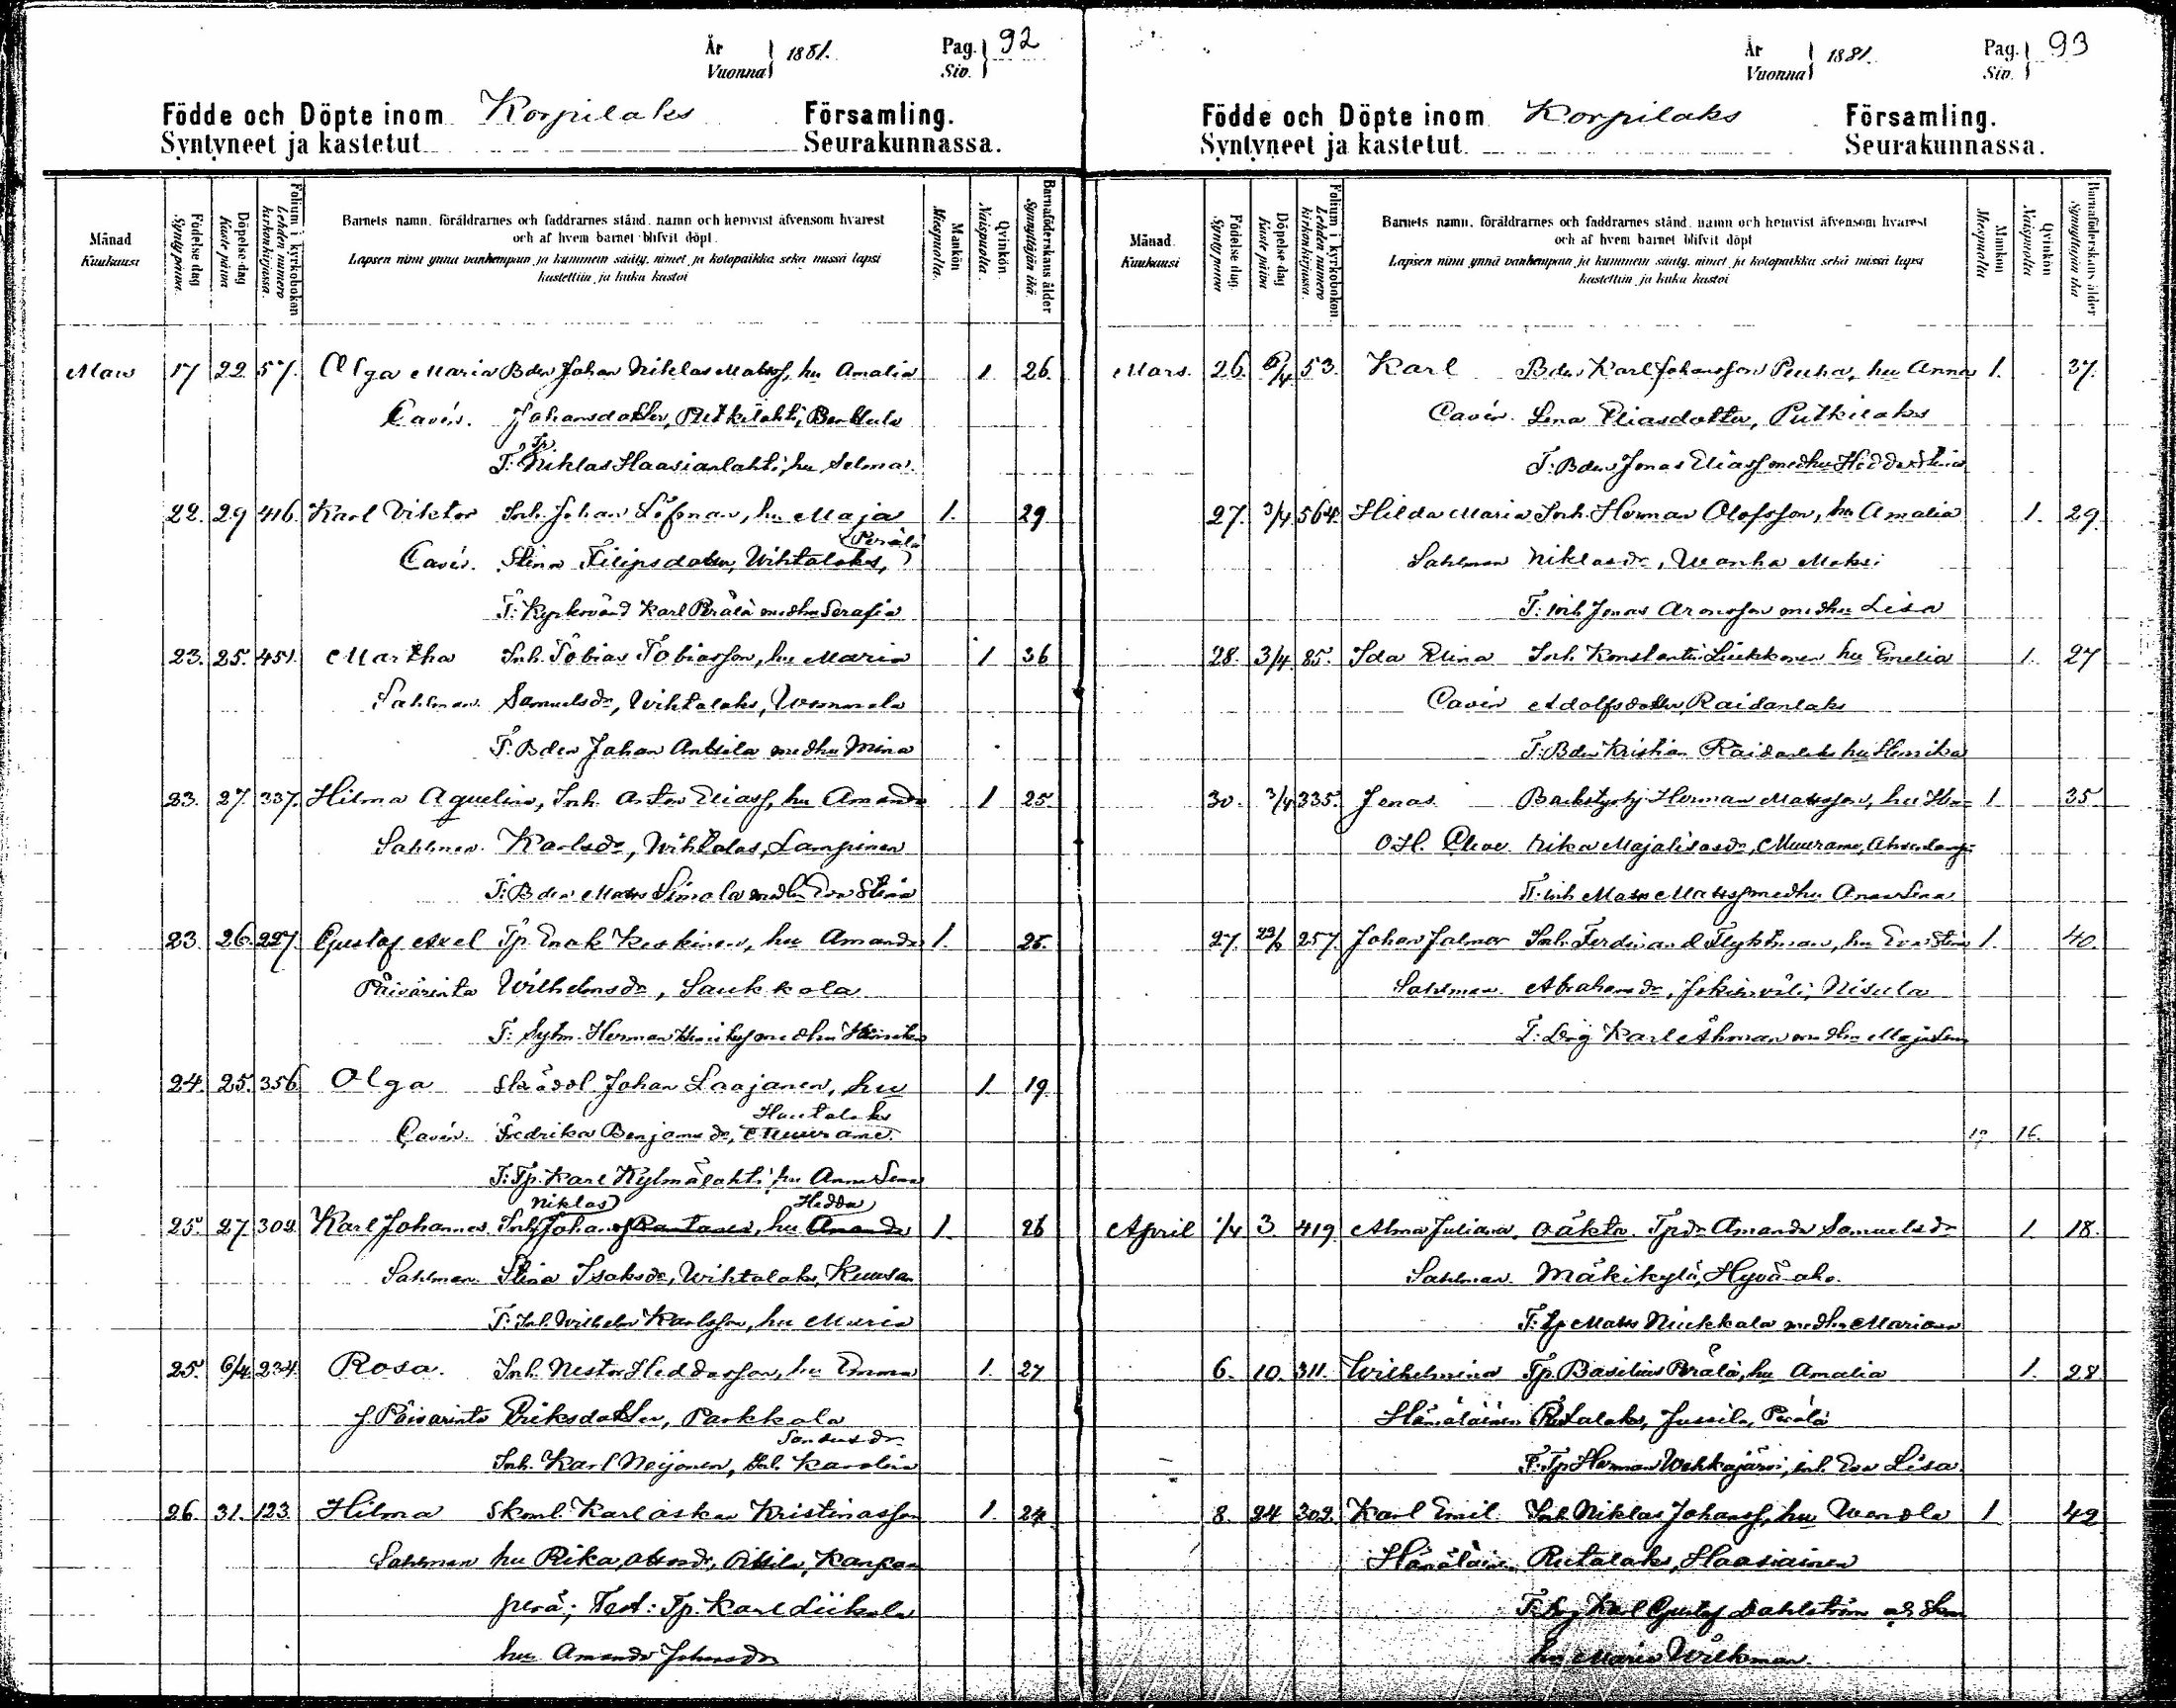 År
Vuonna 1881.
Pag.
Siv. 92
Födde och Döpte inom Korpilaks Församling.
Syntyneet ja kastetut Seurakunnassa.
Månad
Kuukausi
Födelse dag
Syntypäivä.
Döpelse-dag
Kaste päivä
Folium i kyrkoboken
Lehden numero kirkonkirjassa.
Barnets namn, föräldrarnes och faddrarnes stånd, namn och hemvist äfvensom hvarest
och af hvem barnet blifvit döpt.
Lapsen nimi ynnä vanhempain ja kummein sääty, nimet ja kotopaikka sekä missä lapsi
kastettiin ja kuka kastoi
Mankön
Miespuolia.
Qvinkön
Naispuolia.
Barnaföderskans ålder
Synnyttäjän ikä.
Mars 17 22 57. Olga Maria Bdn Johan Niklas Matss, hu Amalia 1. 26.
Cavén. Johansdotter, Putkilahti,
Tp
T: Niklas Haasianlahti, hu Selma.
22. 29 416. Karl Viktor Inh. Johan Löfman, hu Maja 1. 29
Perälä
Cavén. Stina Filipsdotter, Wihtalaks,
T: Kyrkovärd Karl Perälä med hu Serafia
23. 25. 451. Martha Inh. Tobias Tobiasson, hu Maria 1 36
Sahlman. Samuelsdr, Wihtalaks,
T. Bden Johan Anttila med hu Mina
23. 27. 337. Hilma Aquelina, Inh. Anton Eliass, hu Amanda 1 25.
Sahlman. Karlsdr, Lampinen
T: Bden Matts Simola med hu Eva Stina
23. 26. 227. Gustaf Axel Tp. Enok Keskinen, hu Amanda 1. 25.
Päivärinta Wilhelmsdr, Saukkola
T: Sytm. Herman med hu
24. 25. 356 Olga Johan Laajanen, hu 1. 19
Hautalaks
Cavén. Fredrika Benjamsdr, Muurame.
T: Tp. Karl Kylmälahti, hu Anna Lena
Niklas Hedda
25. 27. 302. Karl Johannes. Inh. Johans Rantanen, hu Amanda 1. 26
Sahlman. Stina Isaksdr, Wihtalaks,
T. Inh. Wilhelm Karlsson, hu Maria
25. 6/4 234. Rosa. Inh. Nestor Heddasson, hu Emma 1. 27
J. Päivärinta Eriksdotter, Parkkola
Inh. Karl Neijonen, Inh. Karolina
26. 31. 123. Hilma Karl Oskar Kristinasson 1. 24.
Sahlman hu Rika, Kangas
perä; Test: Tp. Karl
hu Amanda Johansdr
År
Vuonna 1881.
Pag.
Siv. 93
Födde och Döpte inom Korpilaks Församling.
Syntyneet ja kastetut Seurakunnassa.
Månad
Kuukausi
Födelse dag.
Syntypäivä
Döpelse dag
Kaste päivä
Folium i kyrkoboken.
Lehden numero kirkonkirjassa.
Barnets namn, föräldrarnes och faddrarnes stånd, namn och hemvist äfvensom hvarest
och af hvem barnet blifvit döpt
Lapsen nimi ynnä vanhempain ja kummein sääty, nimet ja kotopaikka sekä missä lapsi
kastettiin ja kuka kastoi
Mankön
Miespuolia
Qvinkön
Naispuolia
Barnaföderskans ålder
Synnyttäjän ikä
Mars. 26. 53. Karl Bdn. Karl Johansson Puuha, hu Anna 1. 37.
Cavén. Lena Eliasdotter, Putkilaks
T: Bden Jonas Eliass med hu Hedda Stina
27. 3/4 564. Hilda Maria Inh. Herman Olofsson, hu Amalia 1. 29.
Sahlman Niklasdr, Wanha Moksi
T: Inh Jonas Aronsson med hu Lisa
28. 3/4 85. Ida Elina Inh. Konstantin Liukkonen hu Emelia 1. 27
Cavén Adolfsdotter, Raidanlaks
T: Bdn Kristian Raidanlaks hu Henrika
30. 3/4 335. Jonas. Herman Matsson, hu Hen- 1 35
O.H. Cleve. rika Majalisasdr, Muurame,
T: Inh Matts Matss med hu Anna Lena
27. 257. Johan Jalmar Inh. Ferdinand Flyktman, hu Eva Stina 1. 40.
Sahlman. Abrahamsdr, Nisula
T: Karl Åhman med hu Maja Lena
17. 16.
April 1/4 3. 419 Alma Juliana, oäkta. Tpdr Amanda Samuelsdr 1. 18.
Sahlman. Mäkikylä, Hyväaho.
T: Tp Matts Niukkala med hu Mariana
6. 10. 311. Wilhelmina Tp. Basilius Perälä, hu Amalia 1. 28.
Hämäläinen Rutalaks, Jussila, Perälä
T: Tp Herman Wehkajärvi, inh. Eva Lisa
8. 24 302. Karl Emil Inh. Niklas Johanss, hu Wendla 1 42
Hämäläinen Rutalaks, Haasiainen
T: Karl Gustaf Dahlström
hu Maria Wilkman.